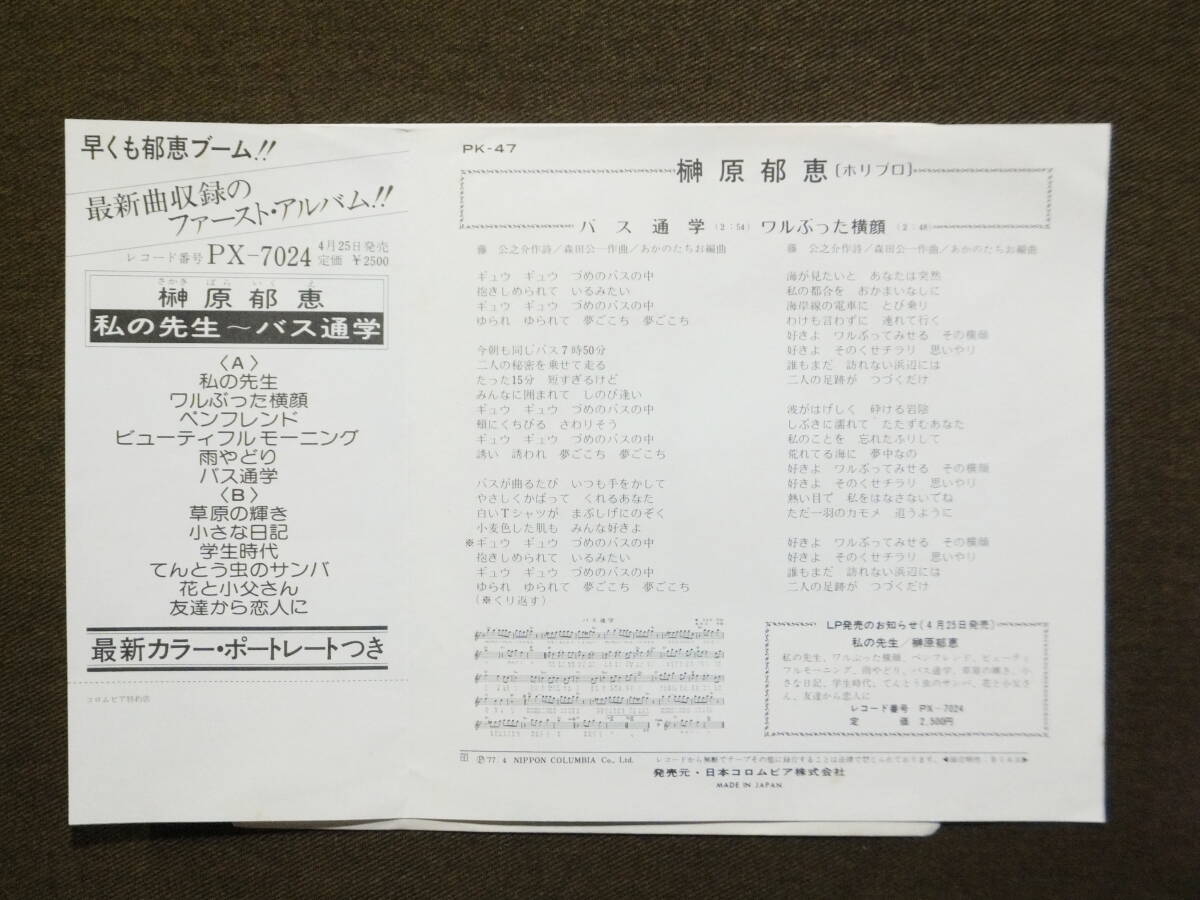 早くも郁恵ブーム!!
最新曲収録の
ファースト・アルバム!!
レコード番号 PX-7024 4月25日発売
定価 ¥2500
さかき ばら いく え
榊原郁恵
私の先生〜バス通学
〈A〉
私の先生
ワルぶった横顔
ペンフレンド
ビューティフル モーニング
雨やどり
バス通学
〈B〉
草原の輝き
小さな日記
学生時代
てんとう虫のサンバ
花と小父さん
友達から恋人に
最新カラー・ポートレートつき
コロムビア特約店
PK-47
榊原郁恵〔ホリプロ〕
バス通学(2:54)
藤 公之介作詩/森田公一作曲/あかのたちお編曲
ギュウ ギュウ づめのバスの中
抱きしめられて いるみたい
ギュウ ギュウ づめのバスの中
ゆられ ゆられて 夢ごこち 夢ごこち
今朝も同じバス7時50分
二人の秘密を乗せて走る
たった15分 短すぎるけど
みんなに囲まれて しのび逢い
ギュウ ギュウ づめのバスの中
頬にくちびる さわりそう
ギュウ ギュウ づめのバスの中
誘い 誘われ 夢ごこち 夢ごこち
バスが曲るたび いつも手をかして
やさしくかばって くれるあなた
白いTシャツが まぶしげにのぞく
小麦色した肌も みんな好きよ
※ギュウ ギュウ づめのバスの中
抱きしめられて いるみたい
ギュウ ギュウ づめのバスの中
ゆられ ゆられて 夢ごこち 夢ごこち
(※くり返す)
バス通学
ワルぶった横顔(2:48)
藤 公之介作詩/森田公一作曲/あかのたちお編曲
海が見たいと あなたは突然
私の都合を おかまいなしに
海岸線の電車に とび乗り
わけも言わずに 連れて行く
好きよ ワルぶってみせる その横顔
好きよ そのくせチラリ 思いやり
誰もまだ 訪れない浜辺には
二人の足跡が つづくだけ
波がはげしく 砕ける岩陰
しぶきに濡れて たたずむあなた
私のことを 忘れたふりして
荒れてる海に 夢中なの
好きよ ワルぶってみせる その横顔
好きよ そのくせチラリ 思いやり
熱い目で 私をはなさないでね
ただ一羽のカモメ 追うように
好きよ ワルぶってみせる その横顔
好きよ そのくせチラリ 思いやり
誰もまだ 訪れない浜辺には
二人の足跡が つづくだけ
LP発売のお知らせ(4月25日発売)
私の先生/榊原郁恵
私の先生、ワルぶった横顔、ペンフレンド、ビューティ
フルモーニング、雨やどり、バス通学、草原の輝き、小
さな日記、学生時代、てんとう虫のサンバ、花と小父さ
ん、友達から恋人に
レコード番号 PX-7024
定 価 2,500円
Ⓟ'77.4 NIPPON COLUMBIA Co., Ltd.
レコードから無断でテープその他に録音することは法律で禁じられております。
発売元・日本コロムビア株式会社
MADE IN JAPAN